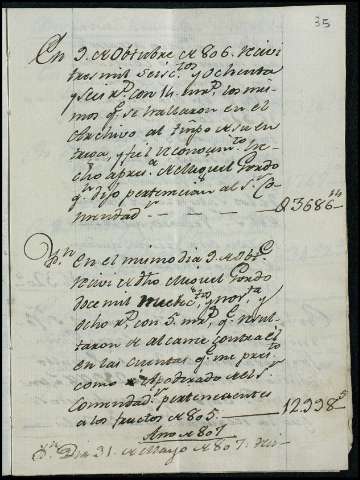 35
En 9. de Octubre de 806. Recivi
tres mil Seisc.tos y Ochenta
y Seis r.s con 14. mrs. los mis-
mos q.e se hallaron en el
Archivo al tmpo de su en
trega, y fiel reconocim.to he-
cho a pres.a de Miquel Pordo
q.n dijo pertenecian al S.r Co-
mendad.r - - - - 3686-14
Yt.n En el mismo dia 9. de Obt.e
Recivi de dho Miquel Pordo
doce mil Nuebec.tos y nov.ta y
ocho r.s con 5. mrs. q.e resul-
taron de alcance contra el
en las Cuentas q.e me pres.to
como Apoderado del S.r
Comendad.r pertenecientes
a los fructos de 805. 12.998-5
Ano de 807
Yt.n Dia 31. de Mayo de 807. Reci-